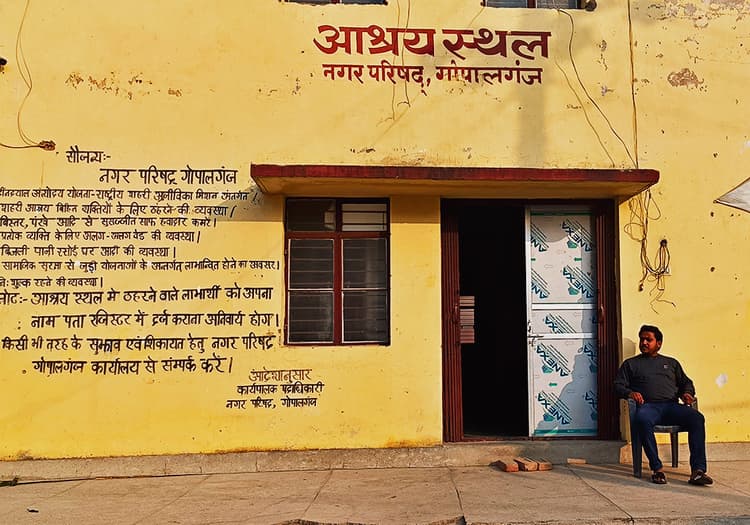 आश्रय स्थल
नगर परिषद्, गोपालगंज
सौजन्य:-
नगर परिषद् गोपालगंज
अंत्योदय योजना-राष्ट्रीय शहरी आजीविका मिशन अंतर्गत
शहरी आश्रय विहिन व्यक्तियों के लिए ठहरने की व्यवस्था।
बिस्तर, पंखे आदि से सुसज्जीत साफ हवादार कमरे।
प्रत्येक व्यक्ति के लिए अलग-अलग बेड की व्यवस्था।
बिजली पानी रसोई घर आदी की व्यवस्था।
सामाजिक सुरक्षा से जुड़ी योजनाओं के अन्तर्गत् लाभान्वित होने का अवसर।
नि:शुल्क रहने की व्यवस्था।
नोट:- आश्रय स्थल में ठहरने वाले लाभार्थी को अपना
नाम पता रजिस्टर में दर्ज कराना अनिवार्य होगा।
किसी भी तरह के सुझाव एवं शिकायत हेतु नगर परिषद्
गोपालगंज कार्यालय से संम्पर्क करें।
आदेशानुसार
कार्यपालक पदाधिकारी
नगर परिषद्, गोपालगंज
ANEXA
ANEXA
ANEXA
ANEXA